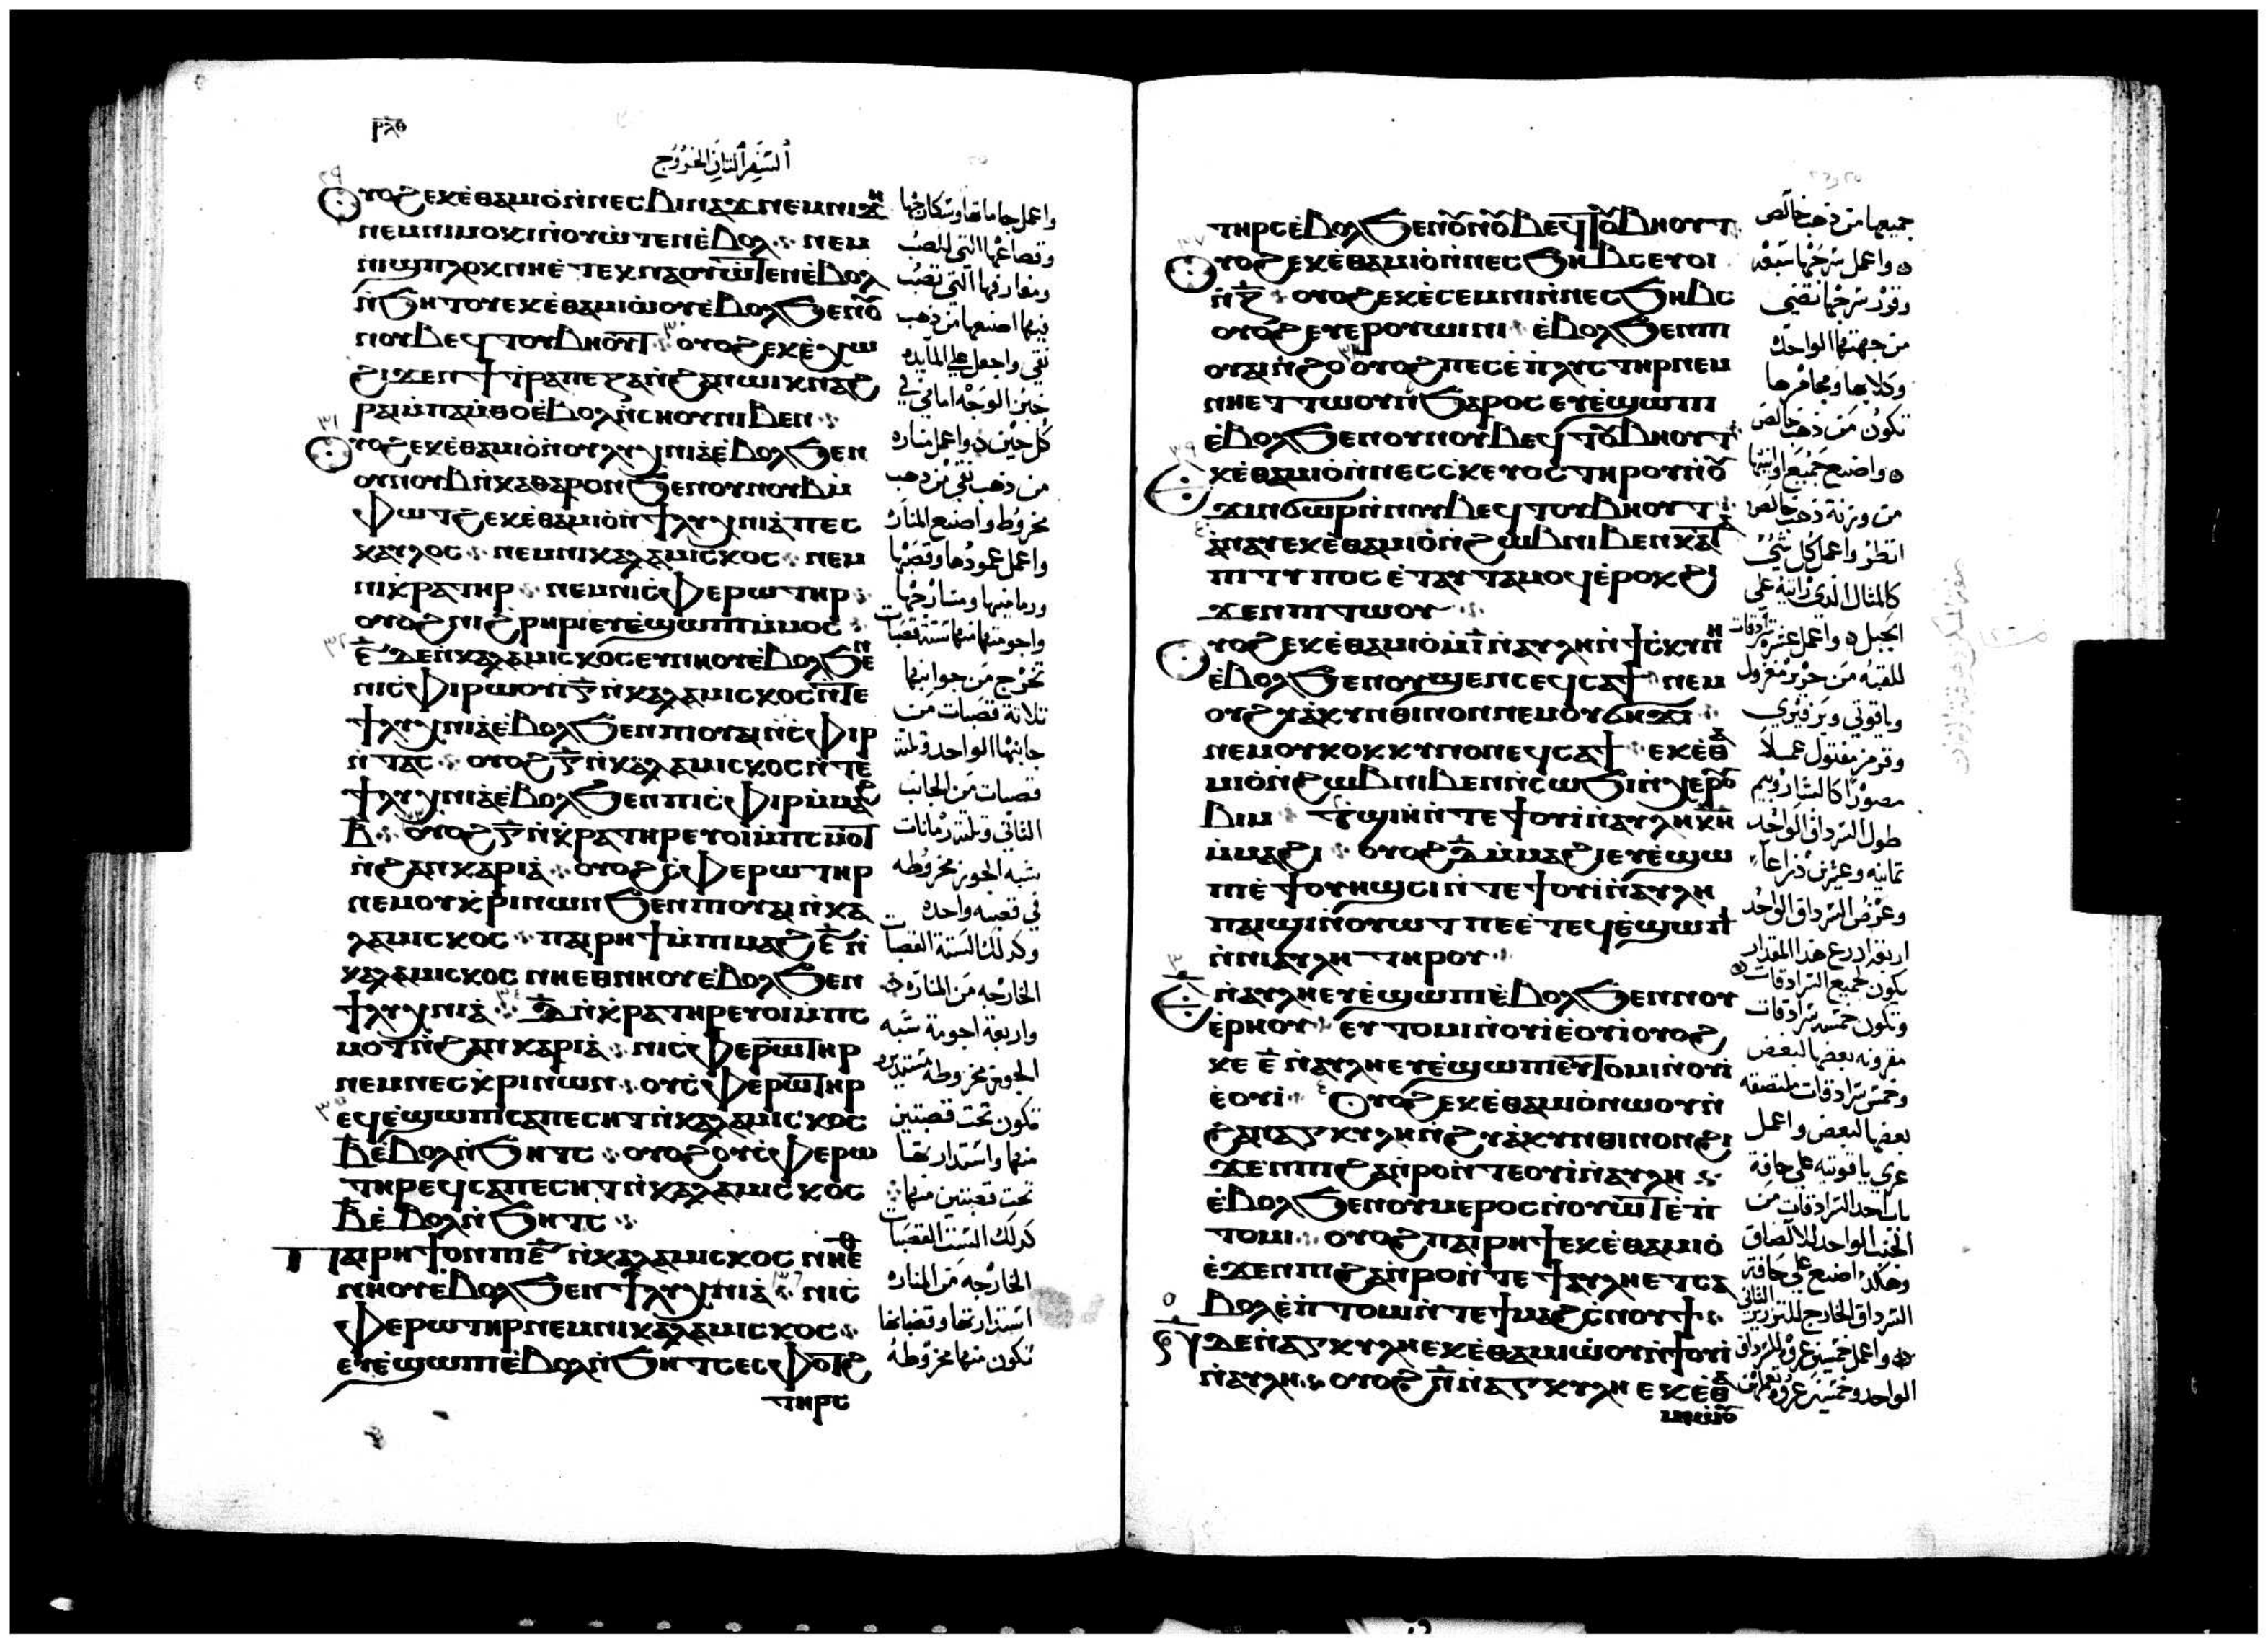 ⲣⲗⲑ
السفر الثاني الخروج
ⲟⲩⲟϩ ⲉⲕⲉ̀ⲑⲁⲙⲓⲟ̀ ⲛ̀ⲛⲉⲥⲃⲓⲛⲁϫ ⲛⲉⲙ ⲛⲓ
ⲛⲉⲙ ⲛⲓⲙⲟⲕⲓ ⲛ̀ⲟⲩⲱⲧⲉⲛ ⲉ̀ⲃⲟⲗ ⲛⲉⲙ
ⲛ̀ϧⲏⲧⲟⲩ ⲉⲕⲉ̀ⲑⲁⲙⲓⲱ̀ⲟⲩ ⲉ̀ⲃⲟⲗϧⲉⲛⲟⲩ
ⲛⲟⲩⲃ ⲉϥⲧⲟⲩⲃⲏⲟⲩⲧ ⲟⲩⲟϩ ⲉⲕⲉ̀ⲭⲱ
ϩⲓϫⲉⲛ ϯⲧⲣⲁⲡⲉⲍⲁ ⲛ̀ϩⲁⲛⲱⲓⲕ ⲛⲁϩ
ⲣⲁⲓ ⲙ̀ⲡⲁⲙ̀ⲑⲟ ⲉ̀ⲃⲟⲗ ⲛ̀ⲥⲛⲟⲩ ⲛⲓⲃⲉⲛ
ⲟⲩⲟϩ ⲉⲕⲉ̀ⲑⲁⲙⲓⲟ̀ ⲛⲟⲩⲗⲩⲭⲛⲓⲁ ⲉ̀ⲃⲟⲗϧⲉⲛ
ⲟⲩⲛⲟⲩⲃ ⲛ̀ⲕⲁⲑⲁⲣⲟⲛ ϧⲉⲛ ⲟⲩⲛⲟⲩⲃ ⲙ̀
ⲫⲱⲧϩ ⲉⲕⲉ̀ⲑⲁⲙⲓⲟ̀ ⲛ̀ϯⲗⲩⲭⲛⲓⲁ̀ ⲡⲉⲥ
ⲕⲁⲩⲗⲟⲥ ⲛⲉⲙ ⲛⲓⲕⲁⲗⲁⲙⲓⲥⲕⲟⲥ ⲛⲉⲙ
ⲛⲓⲕ̀ⲣⲁⲧⲏⲣ ⲛⲉⲙ ⲛⲓⲥ̀ⲫⲉⲣⲱⲧⲏⲣ
ⲟⲩⲟϩ ⲛⲓϩ̀ⲣⲏⲣⲓ ⲉⲩⲉ̀ϣⲱⲡⲓ ⲙ̀ⲙⲟⲥ
ⲋ̅ ⲇⲉ ⲛ̀ⲕⲁⲗⲁⲙⲓⲥⲕⲟⲥ ⲉⲩⲛⲏⲟⲩ ⲉ̀ⲃⲟⲗϧⲉⲛ
ⲛⲓⲥ̀ⲫⲓⲣⲱⲟⲩⲓ ⲅ̅ ⲛ̀ⲕⲁⲗⲁⲙⲓⲥⲕⲟⲥ ⲛ̀ⲧⲉ
ϯⲗⲩⲭⲛⲓⲁ̀ ⲉ̀ⲃⲟⲗϧⲉⲛ ⲡⲓⲟⲩⲁⲓ ⲛ̀ⲥ̀ⲫⲓⲣ
ⲛ̀ⲧⲁⲥ ⲟⲩⲟϩ ⲅ̅ ⲛ̀ⲕⲁⲗⲁⲙⲓⲥⲕⲟⲥ ⲛ̀ⲧⲉ
ϯⲗⲩⲭⲛⲓⲁ̀ ⲉ̀ⲃⲟⲗϧⲉⲛ ⲡⲓⲥ̀ⲫⲓⲣ ⲙ̀ⲙⲁϩ
ⲃ̅ ⲟⲩⲟϩ ⲅ̅ ⲛ̀ⲕ̀ⲣⲁⲧⲏⲣ ⲉⲩⲟⲓ ⲙ̀ⲡⲥⲙⲟⲧ
ⲛ̀ϩⲁⲛⲕⲁⲣⲓⲁ̀ ⲟⲩⲟϩ ⲥ̀ⲫⲉⲣⲱⲧⲏⲣ
ⲛⲉⲙ ⲟⲩⲕ̀ⲣⲓⲛⲱⲛ ϧⲉⲛ ⲡⲓⲟⲩⲁⲓ ⲛ̀ⲕⲁ
ⲗⲁⲙⲓⲥⲕⲟⲥ ⲡⲁⲓⲣⲏϯ ⲙ̀ⲡⲓⲙⲁϩ ⲋ̅ ⲛ̀
ⲕⲁⲗⲁⲙⲓⲥⲕⲟⲥ ⲛⲏⲉⲑⲛⲏⲟⲩ ⲉ̀ⲃⲟⲗϧⲉⲛ
ϯⲗⲩⲭⲛⲓⲁ̀ ⲇ̅ ⲛ̀ⲕ̀ⲣⲁⲧⲏⲣ ⲉⲩⲟⲓ ⲙ̀ⲡⲥ
ⲙⲟⲧ ⲛ̀ϩⲁⲛⲕⲁⲣⲓⲁ̀ ⲛⲓⲥ̀ⲫⲉⲣⲱⲧⲏⲣ
ⲛⲉⲙ ⲛⲉⲥⲕ̀ⲣⲓⲛⲱⲛ ⲟⲩⲥ̀ⲫⲉⲣⲱⲧⲏⲣ
ⲉϥⲉ̀ϣⲱⲡⲓ ⲥⲁⲡⲉⲥⲏⲧ ⲛ̀ⲕⲁⲗⲁⲙⲓⲥⲕⲟⲥ
ⲃ̅ ⲉ̀ⲃⲟⲗ ⲛ̀ϧⲏⲧⲥ ⲟⲩⲟϩ ⲟⲩⲥ̀ⲫⲉⲣⲱ
ⲧⲏⲣ ⲉϥⲥⲁⲡⲉⲥⲏⲧ ⲛ̀ⲕⲁⲗⲁⲙⲓⲥⲕⲟⲥ
ⲃ̅ ⲉ̀ⲃⲟⲗ ⲛ̀ϧⲏⲧⲥ
ⲡⲁⲓⲣⲏϯ ⲟⲛ ⲡⲓ ⲋ̅ ⲛ̀ⲕⲁⲗⲁⲙⲓⲥⲕⲟⲥ ⲛⲏⲉⲑ
ⲛⲏⲟⲩ ⲉ̀ⲃⲟⲗϧⲉⲛ ϯⲗⲩⲭⲛⲓⲁ̀ ⲛⲓⲥ̀
ⲫⲉⲣⲱⲧⲏⲣ ⲛⲉⲙ ⲛⲓⲕⲁⲗⲁⲙⲓⲥⲕⲟⲥ
ⲉⲩⲉ̀ϣⲱⲡⲓ ⲉ̀ⲃⲟⲗ ⲛ̀ϧⲏⲧⲥ ⲉⲥⲫⲟⲧϩ
ⲧⲏⲣⲥ
واعمل جاماتها
وقصاعها التي للصب
ومغارفها التي تصب
فيها اصنعها من ذهب
نقي واجعل على المايده
خبز الوجه امامي في
كل حين واعمل مناره
من ذهب نقي من ذهب
مخروط واصنع المناره
واعمل عمودها وقصبها
تخرج من جوانبها
ثلاثة قصبات من
جانبها الواحد وثلثة
قصبات من الجانب
الثاني وثلثة رمانات
شبه الجوز مخروطه
في قصبه واحده
وكذلك الستة القصبات
الخارجه من المناره
تكون تحت قصبتين
تحت قصبتين منها
كذلك الست القصبات
الخارجه من المناره
تكون منها مخروطه
ⲧⲏⲣⲥ ⲉ̀ⲃⲟⲗϧⲉⲛ ⲟⲩⲛⲟⲩⲃ ⲉϥⲧⲟⲩⲃⲏⲟⲩⲧ
ⲟⲩⲟϩ ⲉⲕⲉ̀ⲑⲁⲙⲓⲟ̀ ⲛ̀ⲛⲉⲥϧⲏⲃⲥ ⲉⲩⲟⲓ
ⲛ̀ⲍ̅ ⲟⲩⲟϩ ⲉⲕⲉ̀ⲥⲉⲙⲛⲓ ⲛ̀ⲛⲉⲥϧⲏⲃⲥ
ⲟⲩⲟϩ ⲉⲩⲉⲣⲟⲩⲱⲓⲛⲓ ⲉ̀ⲃⲟⲗϧⲉⲛ ⲡⲓ
ⲟⲩⲁⲓ ⲛ̀ϩⲟ ⲟⲩⲟϩ ⲡⲉⲥⲉ̀ⲡⲗⲩⲥⲧⲏⲣ ⲛⲉⲙ
ⲛⲏⲉⲧⲧⲱⲟⲩⲛ ϧⲁⲣⲟⲥ ⲉⲩⲉ̀ϣⲱⲡⲓ
ⲉ̀ⲃⲟⲗϧⲉⲛ ⲟⲩⲛⲟⲩⲃ ⲉϥⲧⲟⲩⲃⲏⲟⲩⲧ
ⲉⲕⲉ̀ⲑⲁⲙⲓⲟ̀ ⲛ̀ⲛⲉⲥⲥ̀ⲕⲉⲩⲟⲥ ⲧⲏⲣⲟⲩ ⲛ̀ⲟⲩ
ϫⲓⲛϭⲱⲣ ⲛ̀ⲛⲟⲩⲃ ⲉϥⲧⲟⲩⲃⲏⲟⲩⲧ
ⲁ̀ⲛⲁⲩ ⲉⲕⲉ̀ⲑⲁⲙⲓⲟ̀ ⲛ̀ϩⲱⲃ ⲛⲓⲃⲉⲛ ⲕⲁⲧⲁ
ⲡⲓⲧⲩⲡⲟⲥ ⲉ̀ⲧⲁⲩⲧⲁⲙⲟⲕ ⲉ̀ⲣⲟϥ ϩⲓ
ϫⲉⲛ ⲡⲓⲧⲱⲟⲩ
ⲟⲩⲟϩ ⲉⲕⲉ̀ⲑⲁⲙⲓⲟ̀ ⲙ̀ⲓ̅ ⲛ̀ⲁⲩⲗⲏ ⲛ̀ϯⲥ̀ⲕⲩⲛⲏ
ⲉ̀ⲃⲟⲗϧⲉⲛ ⲟⲩϣⲉⲛⲥ ⲉϥⲥⲁϯ ⲛⲉⲙ
ⲟⲩϩⲩⲁ̀ⲕⲩⲛⲑⲓⲛⲟⲛ ⲛⲉⲙ ⲟⲩϭⲏϫⲓ
ⲛⲉⲙ ⲟⲩⲕⲟⲕⲕⲩⲛⲟⲛ ⲉϥⲥⲁϯ ⲉⲕⲉ̀ⲑⲁ
ⲙⲓⲟ̀ ⲛ̀ϩⲱⲃ ⲛⲓⲃⲉⲛ ⲛ̀ⲥⲱϧⲓ ⲛ̀ⲭⲉⲣⲟⲩ
ⲃⲓⲙ ⲧ̀ϣⲓⲏ ⲛ̀ⲧⲉ ϯⲟⲩⲓ̀ ⲛ̀ⲁⲩⲗⲏ ⲕ̅ⲏ̅
ⲙ̀ⲙⲁϩⲓ ⲟⲩⲟϩ ⲇ̅ ⲙ̀ⲙⲁϩⲓ ⲉⲩⲉ̀ϣⲱ
ⲡⲉ ϯⲟⲩⲏϣⲥⲓ ⲛ̀ⲧⲉ ϯⲟⲩⲓ̀ ⲛ̀ⲁⲩⲗⲏ
ⲡⲁⲓϣⲓ ⲛ̀ⲟⲩⲱⲧ ⲡⲉ ⲉ̀ⲧⲉϥⲉ̀ϣⲱⲡⲓ
ⲛ̀ⲛⲓⲁⲩⲗⲏ ⲧⲏⲣⲟⲩ
ⲉ̅ ⲛ̀ⲁⲩⲗⲏ ⲉⲩⲉ̀ϣⲱⲡⲓ ⲉ̀ⲃⲟⲗϧⲉⲛ ⲛⲟⲩ
ⲉ̀ⲣⲏⲟⲩ ⲉⲩⲧⲟⲙⲓ ⲛ̀ⲟⲩⲓ̀ ⲉ̀ⲟⲩⲓ̀ ⲟⲩⲟϩ
ⲕⲉ ⲉ̅ ⲛ̀ⲁⲩⲗⲏ ⲉⲩⲉ̀ϣⲱⲡⲓ ⲉⲩⲧⲟⲙⲓ ⲛ̀ⲟⲩⲓ̀
ⲉ̀ⲟⲩⲓ̀ ⲟⲩⲟϩ ⲉⲕⲉ̀ⲑⲁⲙⲓⲟ̀ ⲛⲱⲟⲩ ⲛ̀
ϩⲁⲛⲁⲅⲕⲩⲗⲏ ⲛ̀ϩⲩⲁ̀ⲕⲩⲛⲑⲓⲛⲟⲛ ϩⲓ
ϫⲉⲛ ⲡⲓϩⲁⲛⲣⲟ ⲛ̀ⲧⲉ ⲟⲩⲓ̀ ⲛ̀ⲁⲩⲗⲏ
ⲉ̀ⲃⲟⲗϧⲉⲛ ⲟⲩⲙⲉⲣⲟⲥ ⲛ̀ⲟⲩⲱⲧ ⲉ̀ⲡ
ⲧⲟⲙⲓ ⲟⲩⲟϩ ⲡⲁⲓⲣⲏϯ ⲉⲕⲉ̀ⲑⲁⲙⲓⲟ̀
ⲉ̀ϫⲉⲛ ⲡⲓϩⲁⲛⲣⲟ ⲛ̀ⲧⲉ ϯⲁⲩⲗⲏ ⲉⲧⲥⲁ
ⲃⲟⲗ ⲉ̀ⲡⲧⲟⲙ ⲛ̀ⲧⲉ ϯⲙⲁϩⲥ̀ⲛⲟⲩϯ
ⲇⲉ ⲛ̀ⲁⲅⲕⲩⲗⲏ ⲉⲕⲉ̀ⲑⲁⲙⲓⲱ̀ⲟⲩ ⲛ̀ϯⲟⲩⲓ̀
ⲛ̀ⲁⲩⲗⲏ ⲟⲩⲟϩ ⲛ̅ ⲛ̀ⲁⲅⲕⲩⲗⲏ ⲉⲕⲉ̀ⲑⲁ
ⲙⲓⲱ̀ⲟⲩ
جميعها من ذهب خالص
واعمل سرجها سبعه
وقود سرجها تضي
من جهتها الواحده
تكون من ذهب خالص
واصنع جميع اوانيها
من وزنة ذهب خالص
انظر واعمل كل شي
كالمثال الذي رايته على
الجبل واعمل عشرة سرادقات
للقبه من حرير مغزول
وقرمز مفتول عملا
طول السرداق الواحد
ثمانيه وعشرين ذراعا
وعرض السرداق الواحد
اربعة اذرع هذا المقدار
يكون لجميع السرادقات
وتكون خمسه سرادقات
مقرونه بعضها لبعض
وخمس سرادقات ملتصقه
بعضها لبعض واعمل
عري ياقوتيه على حافة
باب احد السرادقات من
الجنب الواحد للالصاق
وهكذا اصنع على حافة